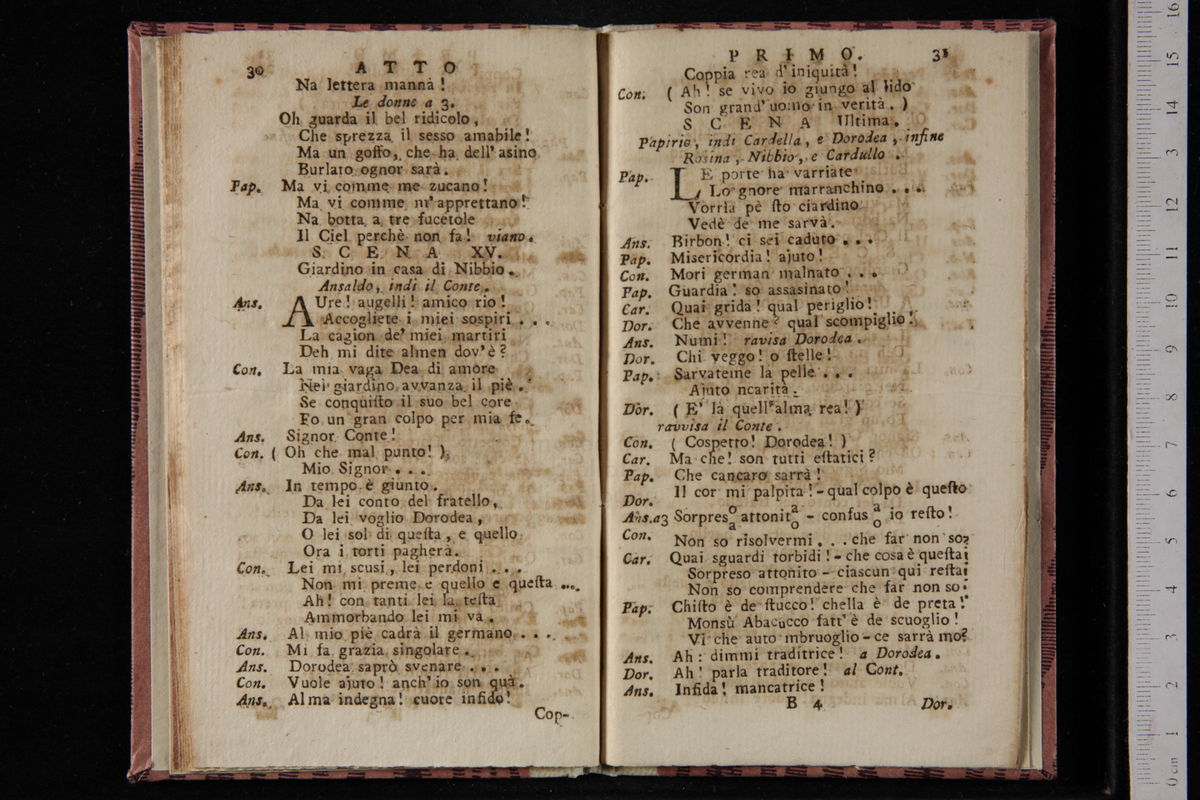 30 ATTO
Na lettera mannà !
Le donne a 3.
Oh guarda il bel ridicolo,
Che sprezza il sesso amabile!
Ma un goffo, che ha dell' asino
Burlato ognor sarà.
Pap. Ma vi comme me zucano!
Ma vi comme m' apprettano!
Na botta a tre fucetole
Il Ciel perchè non fa! viano.
SCENA XV.
Giardino in casa di Nibbio.
Ansaldo, indi il Conte.
Ans. AUre! augelli! amico rio!
Accogliete i miei sospiri ...
La cagion de' miei martiri
Deh mi dite almen dov' è?
Con. La mia vaga Dea di amore
Nel giardino avvanza il piè.
Se conquiſto il suo bel core
Fo un gran colpo per mia fe.
Ans. Signor Conte!
Con. ( Oh che mal punto! )
Mio Signor ...
Ans. In tempo è giunto.
Da lei conto del fratello,
Da lei voglio Dorodea,
O lei sol di queſta, e quello
Ora i torti pagherà.
Con. Lei mi scusi, lei perdoni ...
Non mi preme e quello e queſta ...
Ah! con tanti lei la teſta
Ammorbando lei mi va.
Ans. Al mio piè cadrà il germano ...
Con. Mi fa grazia singolare.
Ans. Dorodea saprò svenare ...
Con. Vuole ajuto! anch' io son quà.
Ans. Alma indegna! cuore infido!
Cop-
PRIMO. 31
Coppia rea d' iniquità!
Con. ( Ah! se vivo io giungo al lido
Son grand' uomo in verità. )
SCENA Ultima.
Papirio, indi Cardella, e Dorodea, infine
Rosina, Nibbio, e Cardullo.
Pap. LE porte ha varriate
Lo gnore marranchino ...
Vorria pè ſto ciardino
Vedè de me sarvà.
Ans. Birbon! ci sei caduto ...
Pap. Misericordia! ajuto!
Con. Mori german malnato ...
Pap. Guardia! so assasinato!
Car. Quai grida! qual periglio!
Dor. Che avvenne? qual scompiglio!
Ans. Numi! ravisa Dorodea.
Dor. Chi veggo! o ſtelle!
Pap. Sarvateme la pelle ...
Ajuto ncarità.
Dor. ( E' là quell' alma rea! )
ravvisa il Conte.
Con. ( Cospetto! Dorodea! )
Car. Ma che! son tutti eſtatici?
Pap. Che cancaro sarrà!
Dor. Il cor mi palpita! - qual colpo è queſto
Ans. a3 Sorpres o/a attonit a/o - confus a/o io reſto!
Con. Non so risolvermi ... che far non so?
Car. Quai sguardi torbidi! - che cosa è queſta!
Sorpreso attonito - ciascun qui reſta!
Non so comprendere che far non so!
Pap. Chiſto è de ſtucco! chella è de preta!
Monsù Abacucco fatt' è de scuoglio!
Vi che auto mbruoglio - ce sarrà mo?
Ans. Ah: dimmi traditrice! a Dorodea.
Dor. Ah! parla traditore! al Cont.
Ans. Infida! mancatrice!
B 4 Dor.
0 cm 1 2 3 4 5 6 7 8 9 10 11 12 3 14 15 16